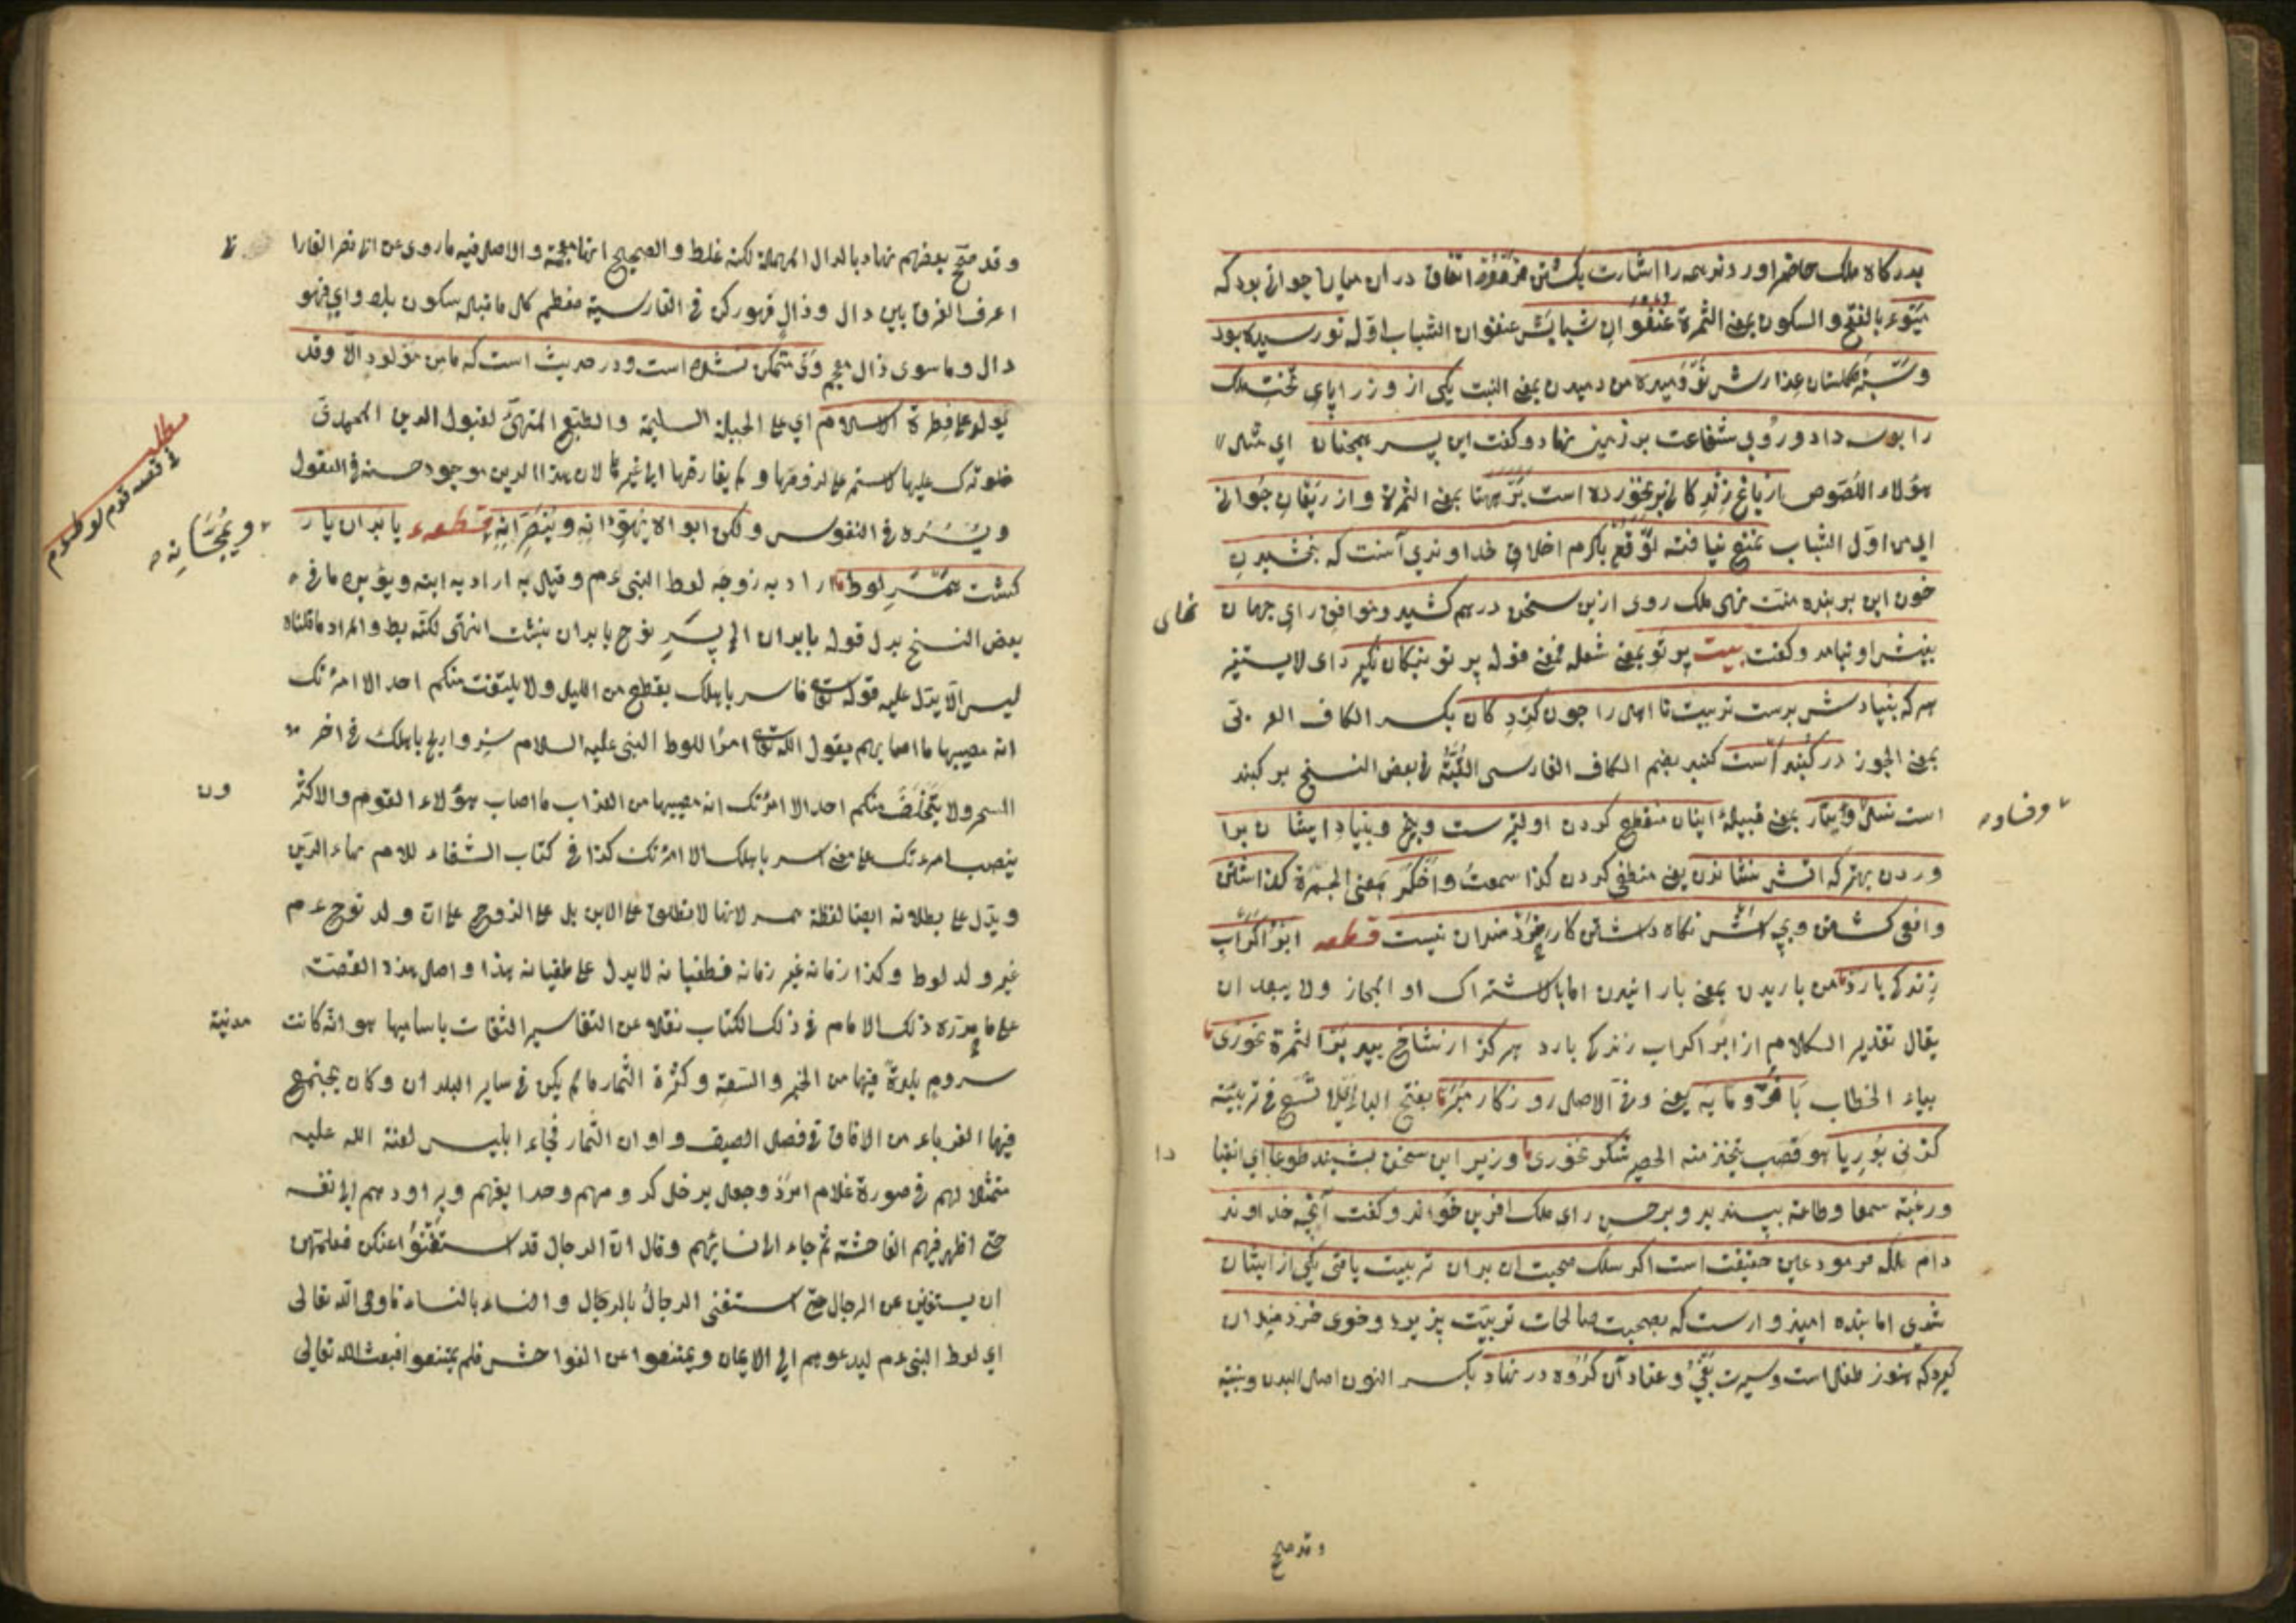 بدركاه ملك حاضر اوردند همه را اشارت بكشتن فرمود اتفاق در ان ميان جوانى بود كه
ميوه بالفتح والسكون بمعنى الثمرة عنفوان شبابش عنفوان الشباب اوله نورسيده بود
وسبزه كلستان عذارش نو دميده من دميدن بمعنى النبت يكى از وزرا پاى تخت ملك
را بوسه داد و روى شفاعت بر زمين نهاد و كفت اين پسر همچنان اى مثل
هؤلاء اللصوص از باغ زندكانى بر نخورده است بر ههنا بمعنى الثمرة و از ريعان جوانى
اى من اول الشباب تمتع نيافته توقع بكرم اخلاق خداوندى آنست كه بخشيدن
خون اين بر بنده منت نهى ملك روى ازين سخن درهم كشيد و موافق راى جهان
بينش او نيامد و كفت بيت پرتو بمعنى شعله فمعنى قوله پرتو نيكان نكيرد اى لا يستنير
هر كه بنيادش بدست تربيت نا اهل را چون كردكان بكسر الكاف العربى
بمعنى الجوز در كنبد است كنبد بضم الكاف الفارسى القبة فى بعض النسخ بر كنبد
است نسل وتبار بمعنى قبيلة اينان منقطع كردن اوليترست وبيخ وبنياد ايشان برا
وردن بهتر كه اتش نشاندن يعنى منطفى كردن كذا سمعت واخكر بمعنى الجمرة كذاشتن
وافعى كشتن وبچه اش نكاه داشتن كار خردمندان نيست قطعه ابر اكر آب
زندكى بارد من باريدن بمعنى بارانيدن اما بالاشتراك او المجاز ولا يبعد ان
يقال تقدير الكلام از ابر اكر اب زندكى بارد هركز از شاخ بيد بر الثمرة نخورى
بياء الخطاب با فرومايه يعنى دنى الاصل روزكار مبر بفتح الباء اى لا تسع فى تربيته
كز نى بوريا هو قصب يتخذ منه الحصير شكر نخورى وزير اين سخن بشنيد طوعا اى انقيادا
ورغبة سمعا وطاعة بپسنديد وبر حسن راى ملك افرين خواند و كفت آنچه خداوند
دام ملكه فرمود عين حقيقت است اكر سلك صحبت ان بدان تربيت يافتى يكى از ايشان
شدى اما بنده اميدوارست كه بصحبت صالحان تربيت پذيرد وخوى خردمندان
كيرد كه هنوز طفل است وسيرت بغى وعناد آن كروه در نهاد بكسر النون اصل البدن وبنيته
نماى
وفساد
دا
وقد صحح
وقد صحح بعضهم نهاد بالدال المهملة لكنه غلط والصحيح انها معجمة والاصل فيه ما روى عن
اعرف الفرق بين دال وذال فهو ركن فى الفارسية معظم كل ما قبله سكون بلا واى فهو
دال وما سوى ذال معجم وى متمكن نشده است ودر حديث است كه ما من مولود الا وقد
يولد على فطرة الاسلام اى على الجبلة السليمة والطبع المتهيئ لقبول الدين المحمدى
فلو ترك عليها لاستمر على لزومها ولم يفارقها الى غيرها لان هذا الدين موجود حسنه فى العقول
ويسره فى النفوس ولكن ابواه يهودانه وينصرانه قطعه با بدان يار
كشت همسر لوط اراد به زوجه لوط النبى عم وقيل به اراد به ابنه ويؤيده ما فى
بعض النسخ بدل قوله با بدان الخ پسر نوح با بدان بنشست انتهى لكنه خبط والمراد ما قلناه
ليس الا يدل عليه قوله تعالى فاسر باهلك بقطع من الليل ولا يلتفت منكم احد الا امرئتك
انه مصيبها ما اصابهم يقول الله تعالى امرا للوط النبى عليه السلام سر وادلج باهلك فى اخر
السحر ولا يتخلف منكم احد الا امرئتك انه مصيبها من العذاب ما اصاب هؤلاء القوم والاكثر
ينصب امرءتك على معنى اسر باهلك الا امرئتك كذا فى كتاب الشفاء للامام بهاء الدين
ويدل على بطلانه ايضا لفظة همسر لانها لا تطلق على الابن بل على الزوج على ان ولد نوح عم
غير ولد لوط وكذا زمانه غير زمانه فطغيانه لا يدل على طغيانه هذا واصل هذه القصة
على ما حرره ذلك الامام فى ذلك الكتاب نقلا عن التفاسير الثقات باساميها هو انه كانت
سدوم بلدة فيها من الخير والسعة وكثرة الثمار ما لم يكن فى ساير البلدان وكان يجتمع
فيها الغرباء من الافاق فى فصل الصيف واوان الثمار فجاء ابليس لعنة الله عليه
متمثلا لهم فى صورة غلام امرد وجعل يدخل كرومهم وحدايقهم ويراودهم الى نفسه
حتى اظهر فيهم الفاحشة ثم جاء الى نسائهم وقال ان الرجال قد استغنوا عنكن فعلمتهن
ان يستغنين عن الرجال حتى استغنى الرجال بالرجال والنساء بالنساء فاوحى الله تعالى
اى لوط النبى عم ليدعوهم الى الايمان ويمتنعوا عن الفواحش فلم يمتنعوا فبعث الله تعالى
مطلب
فى قصه قوم لوط عم
ويمجسانه
ون
مدينة